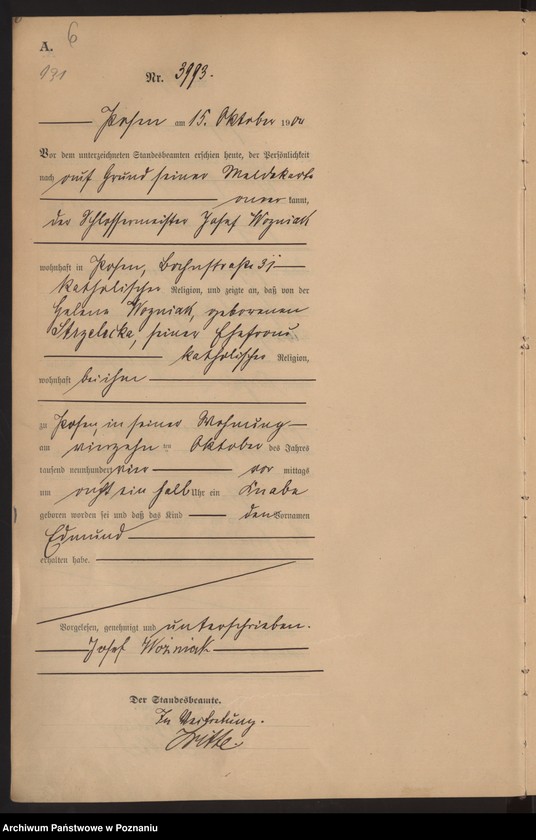 A. 6
931
Nr. 3993.
Posen am 15. Oktober 1904
Vor dem unterzeichneten Standesbeamten erschien heute, der Persönlichkeit
nach auf Grund seiner Meldekarte
kannt,
der Schlossermeister Josef Wozniak
wohnhaft in Posen, 31
katholischer Religion, und zeigte an, daß von der
Helene Wozniak, geborenen
Strzelecka, seiner Ehefrau,
katholischer Religion,
wohnhaft bei ihm
zu Posen, in seiner Wohnung
am vierzehnten Oktober des Jahres
tausend neunhundert vier vor mittags
um acht ein halb Uhr ein Knabe
geboren worden sei und daß das Kind den Vornamen
Edmund
erhalten habe.
Vorgelesen, genehmigt und unterschrieben.
Josef Woźniak
Der Standesbeamte.
In Vertretung.
Archiwum Państwowe w Poznaniu